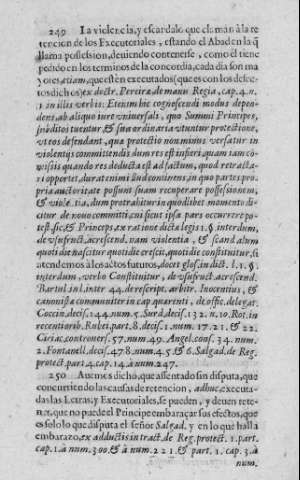 249 La violencia, y escandalo que claman à la re
tencion de los Executoriales, estando el Abad en la q̃
llama possession, deuiendo contenerse, como èl tiene
pedido en los terminos de la concordia, cada dia son ma
yores, etiam, que estèn executados (que es con los defec-
tos dichos) ex doct. Pereira de manu Regia, cap. 4. n.
1. in illis verbis: Etenim hic cognoscendi modus depen
dens, ab aliquo iure vniuersali, quo Summi Principes,
subditos tuentur, & sua ordinaria vtuntur protectione,
vt eos defendant, qua protectio non minus versatur in
violentijs committendis dum res est in fieri, quam iam cõ-
missis quando res deducta est ad factum, quod retracta-
ri oportet, durat enim iliud continens, in quo partes pro-
pria auctoritate possunt suam recuperare possessionem,
& violẽtia, dum protrahitur in quodlibet momento di-
citur de nouo committi, cui sicut ipsa pars occurrere po-
test, sic, & Princeps, ex ratione dictæ legis 1. §. interdum,
de vsufruct. acrescend. nam violentia, & scandalum
quoti die nascitur quotidie crescit, quotidie constituitur, si
atendemos à los actos futuros, docet glos. in dict. l. 1. §.
interdum, verbo Constituitur, de vsufruct. acrescend.
Bartul. in l. inter 44. de rescript. arbitr. Inocentius, &
canonistæ communiter in cap. quærenti, de offic. delegat.
Coccin. decis. 144. num. 5. Surd. decis. 132. n. 10. Rot. in
recentiorib. Rubei, part. 8. decis. 1. num. 17. 21. & 22.
Ciriac. controuers. 57. num. 49. Angel. conf. 34. num.
2. Fontanell. decis. 478. num. 4. 5. & 6. Salgad. de Reg.
protect. part. 4. cap. 14. à num. 247.
250 Auemos dicho, que assentado sin disputa, que
concurriendo las causas de retencion, adhuc, executa-
das las Letras, y Executoriales, se pueden, y deuen rete-
ner, que no puede el Principe embaraçar sus efectos, que
es solo lo que disputa el señor Salgad. y en lo que halla
embarazo, ex adductis in tract. de Reg. protect. 1. part.
cap. 1. à num. 300. & à num. 221. & part. 1. cap. 3. à
num.